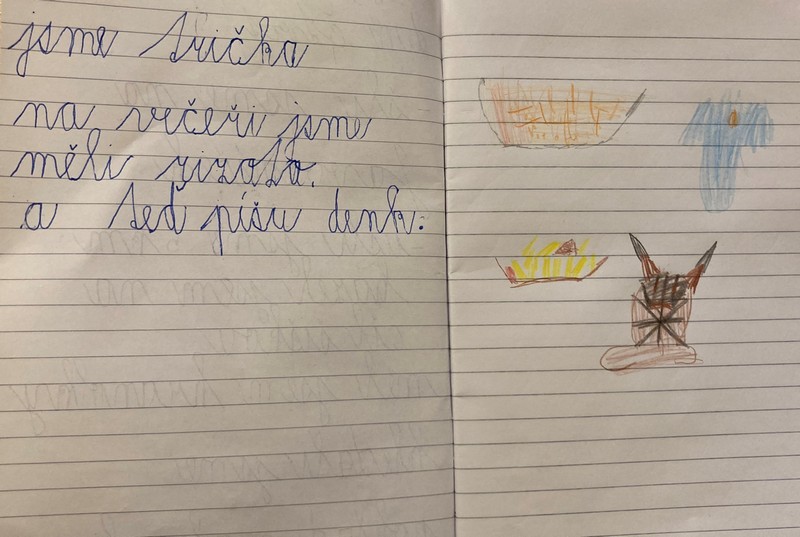 jsme trička
na večeři jsme
měli rizoto.
a teď píšu denk: